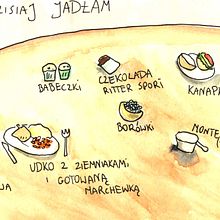 ZISIAJ JADŁAM
BABECZKI
CZEKOLADA
RITTER SPORT
KANAP
BORÓWKI
MONTE
UDKO Z ZIEMNIAKAMI
I GOTOWANĄ
MARCHEWKĄ
WA